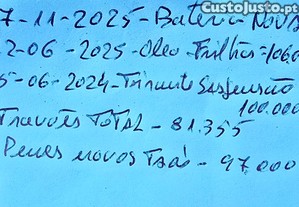 Custojusto.pt
7-11-2025-Bateria Nova
2-06-2025-Oleo-Filtros=106.0
5-06-2024-Tirante Suspensão
100.000
Travões TOTAL - 81.355
Peneus novos Trás - 97.000